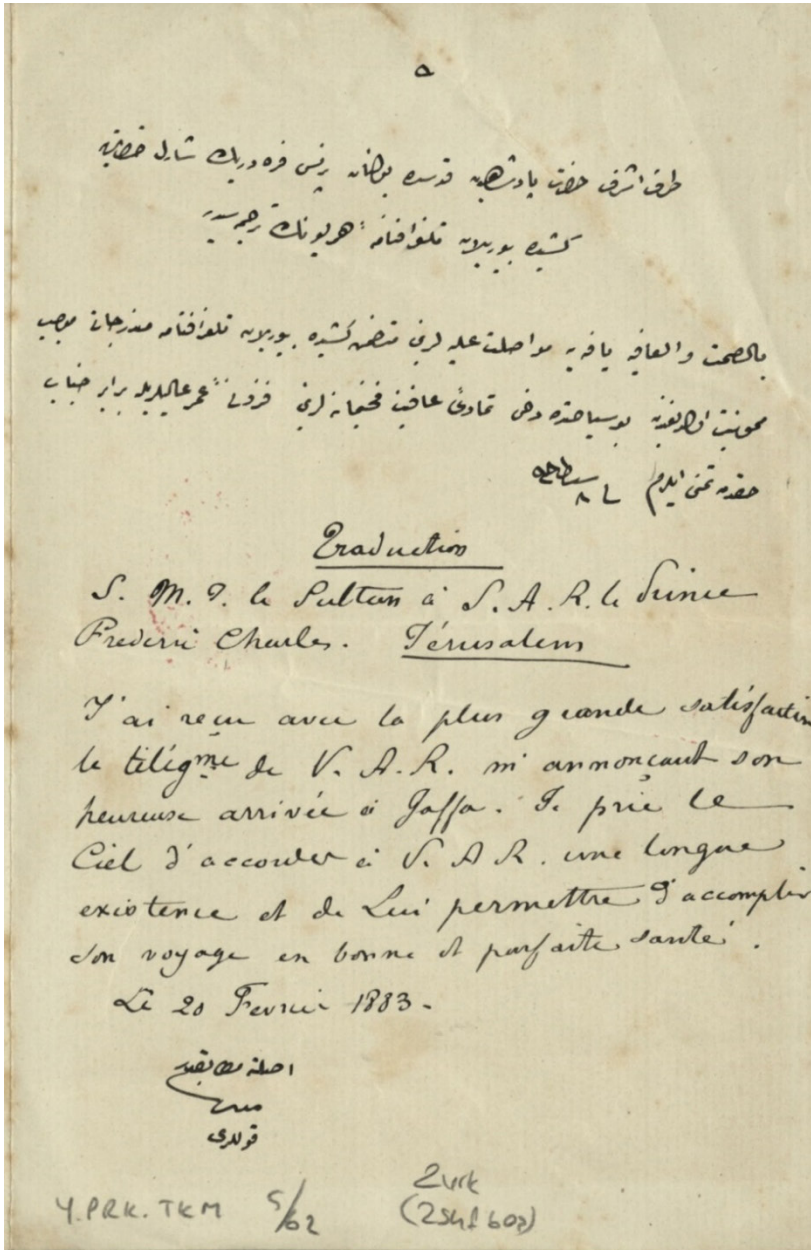 ٥
طرف اشرف حضرت پادشاهیدن قدسده بولنان پرنس فره دریك شارل حضرتلرینه
كشیده بیوریلان تلغرافنامهٔ همایونك ترجمه سیدر
بالصحت والعافیه یافه یه مواصلت علیه لرینی متضمن كشیده بیوریلان تلغرافنامه مندرجاتی موجب
ممنونیت اولدیغندن بو سیاحتده دخی تمادئ عافیت فخیمانه لرینی فزونئ عمر عالیلریله برابر جناب
حقدن تمنی ایلرم
Traduction
S. M. I. le Sultan à S. A. R. le Prince
Frederic Charles. Jérusalem
J'ai reçu avec la plus grande satisfaction
le télégme de V. A. R. m'annonçant son
heureuse arrivée à Jaffa. Je prie le
Ciel d'accorder à V. A R. une longue
existence et de Lui permettre d'accomplir
son voyage en bonne et parfaite santé.
Le 20 Fevrier 1883.
اصلنه مطابقدر
قوللری
Y.PRK.TKM 5/62